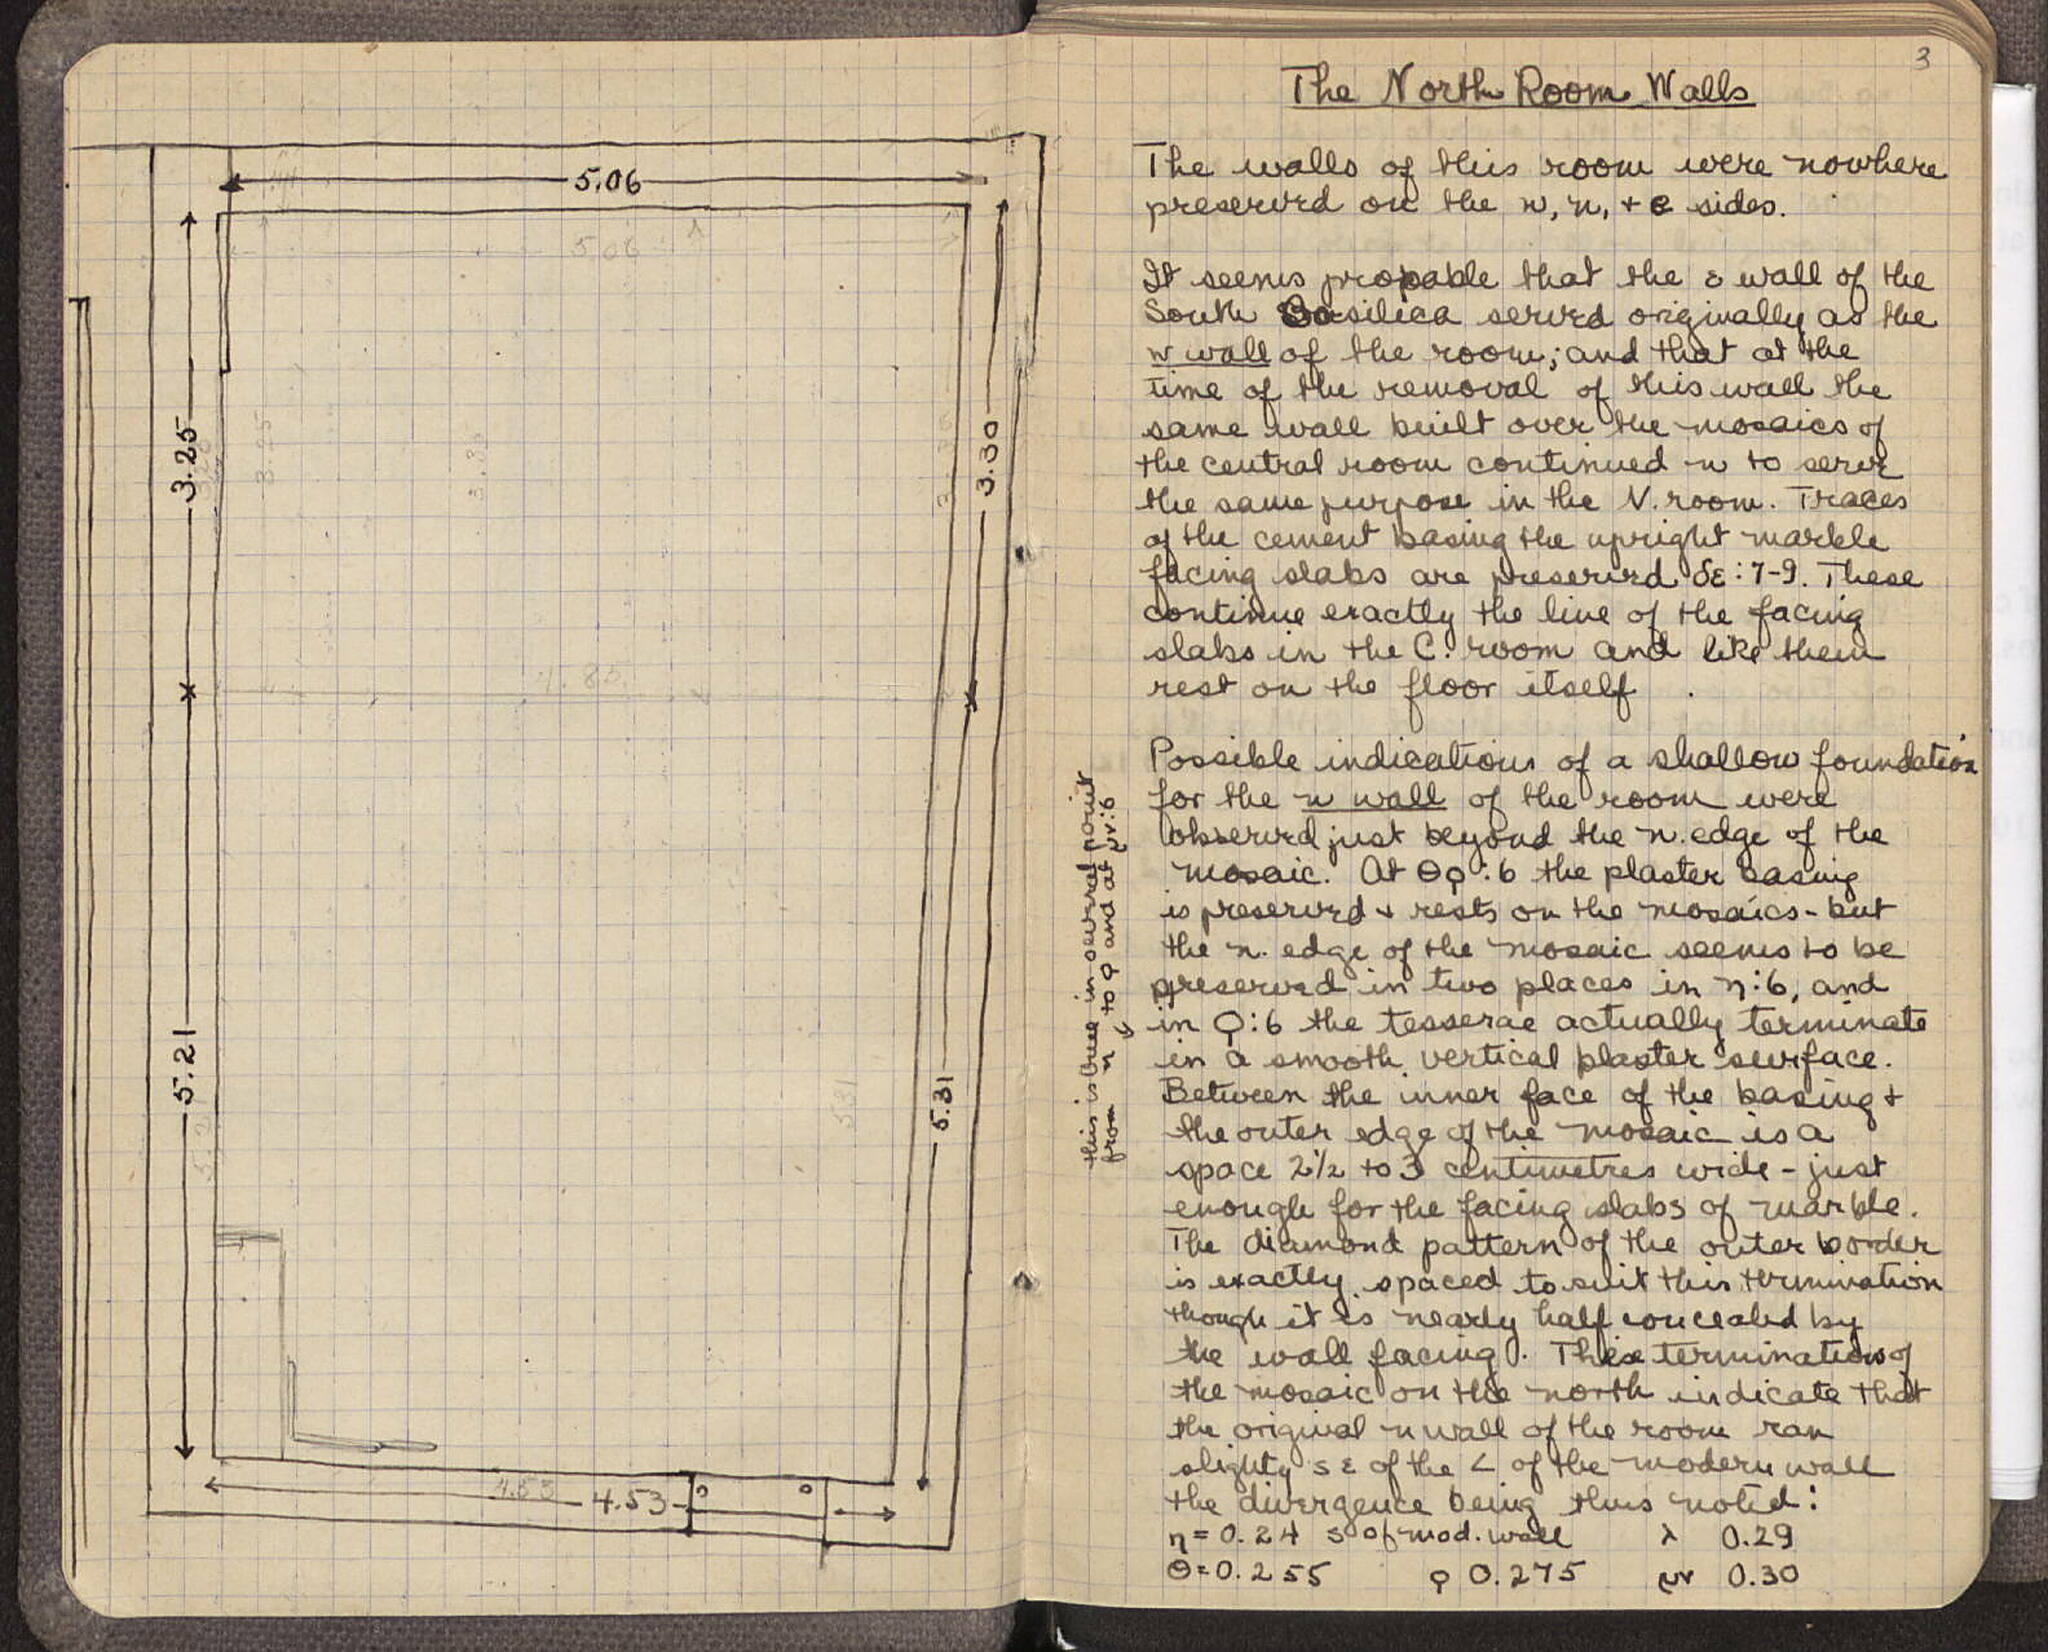 5.06
5.06
3.25
3.25
3.30
3.30
4.85
5.21
5.31
5.31
4.53
4.53
3
The North Room Walls
The walls of this room were nowhere
preserved on the w, n, + e sides.
It seems propable that the ε wall of the
South Basilica served originally as the
w wall of the room; and that at the
time of the removal of this wall the
same wall built over the mosaics of
the central room continued n to serve
the same purpose in the N. room. Traces
of the cement basing the upright marble
facing slabs are preserved δε:7-9. These
continue exactly the line of the facing
slabs in the C. room and like them
rest on the floor itself.
Possible indications of a shallow foundation
for the n wall of the room were
observed just beyond the n. edge of the
mosaic. At Θϙ:6 the plaster basing
is preserved + rests on the mosaics - but
the n. edge of the mosaic seems to be
preserved in two places in η:6, and
in ϙ:6 the tesserae actually terminate
in a smooth vertical plaster surface.
Between the inner face of the basing +
the outer edge of the mosaic is a
space 2½ to 3 centimetres wide - just
enough for the facing slabs of marble.
The diamond pattern of the outer border
is exactly spaced to suit this termination
though it is nearly half concealed by
the wall facing. These terminations of
the mosaic on the north indicate that
the original n wall of the room ran
slighty s ε of the L of the modern wall
the divergence being thus noted:
η = 0.24 s of mod. wall λ 0.29
Θ = 0.255 ϙ 0.275 μν 0.30
this is true in several points
from η to ϙ and at μν:6